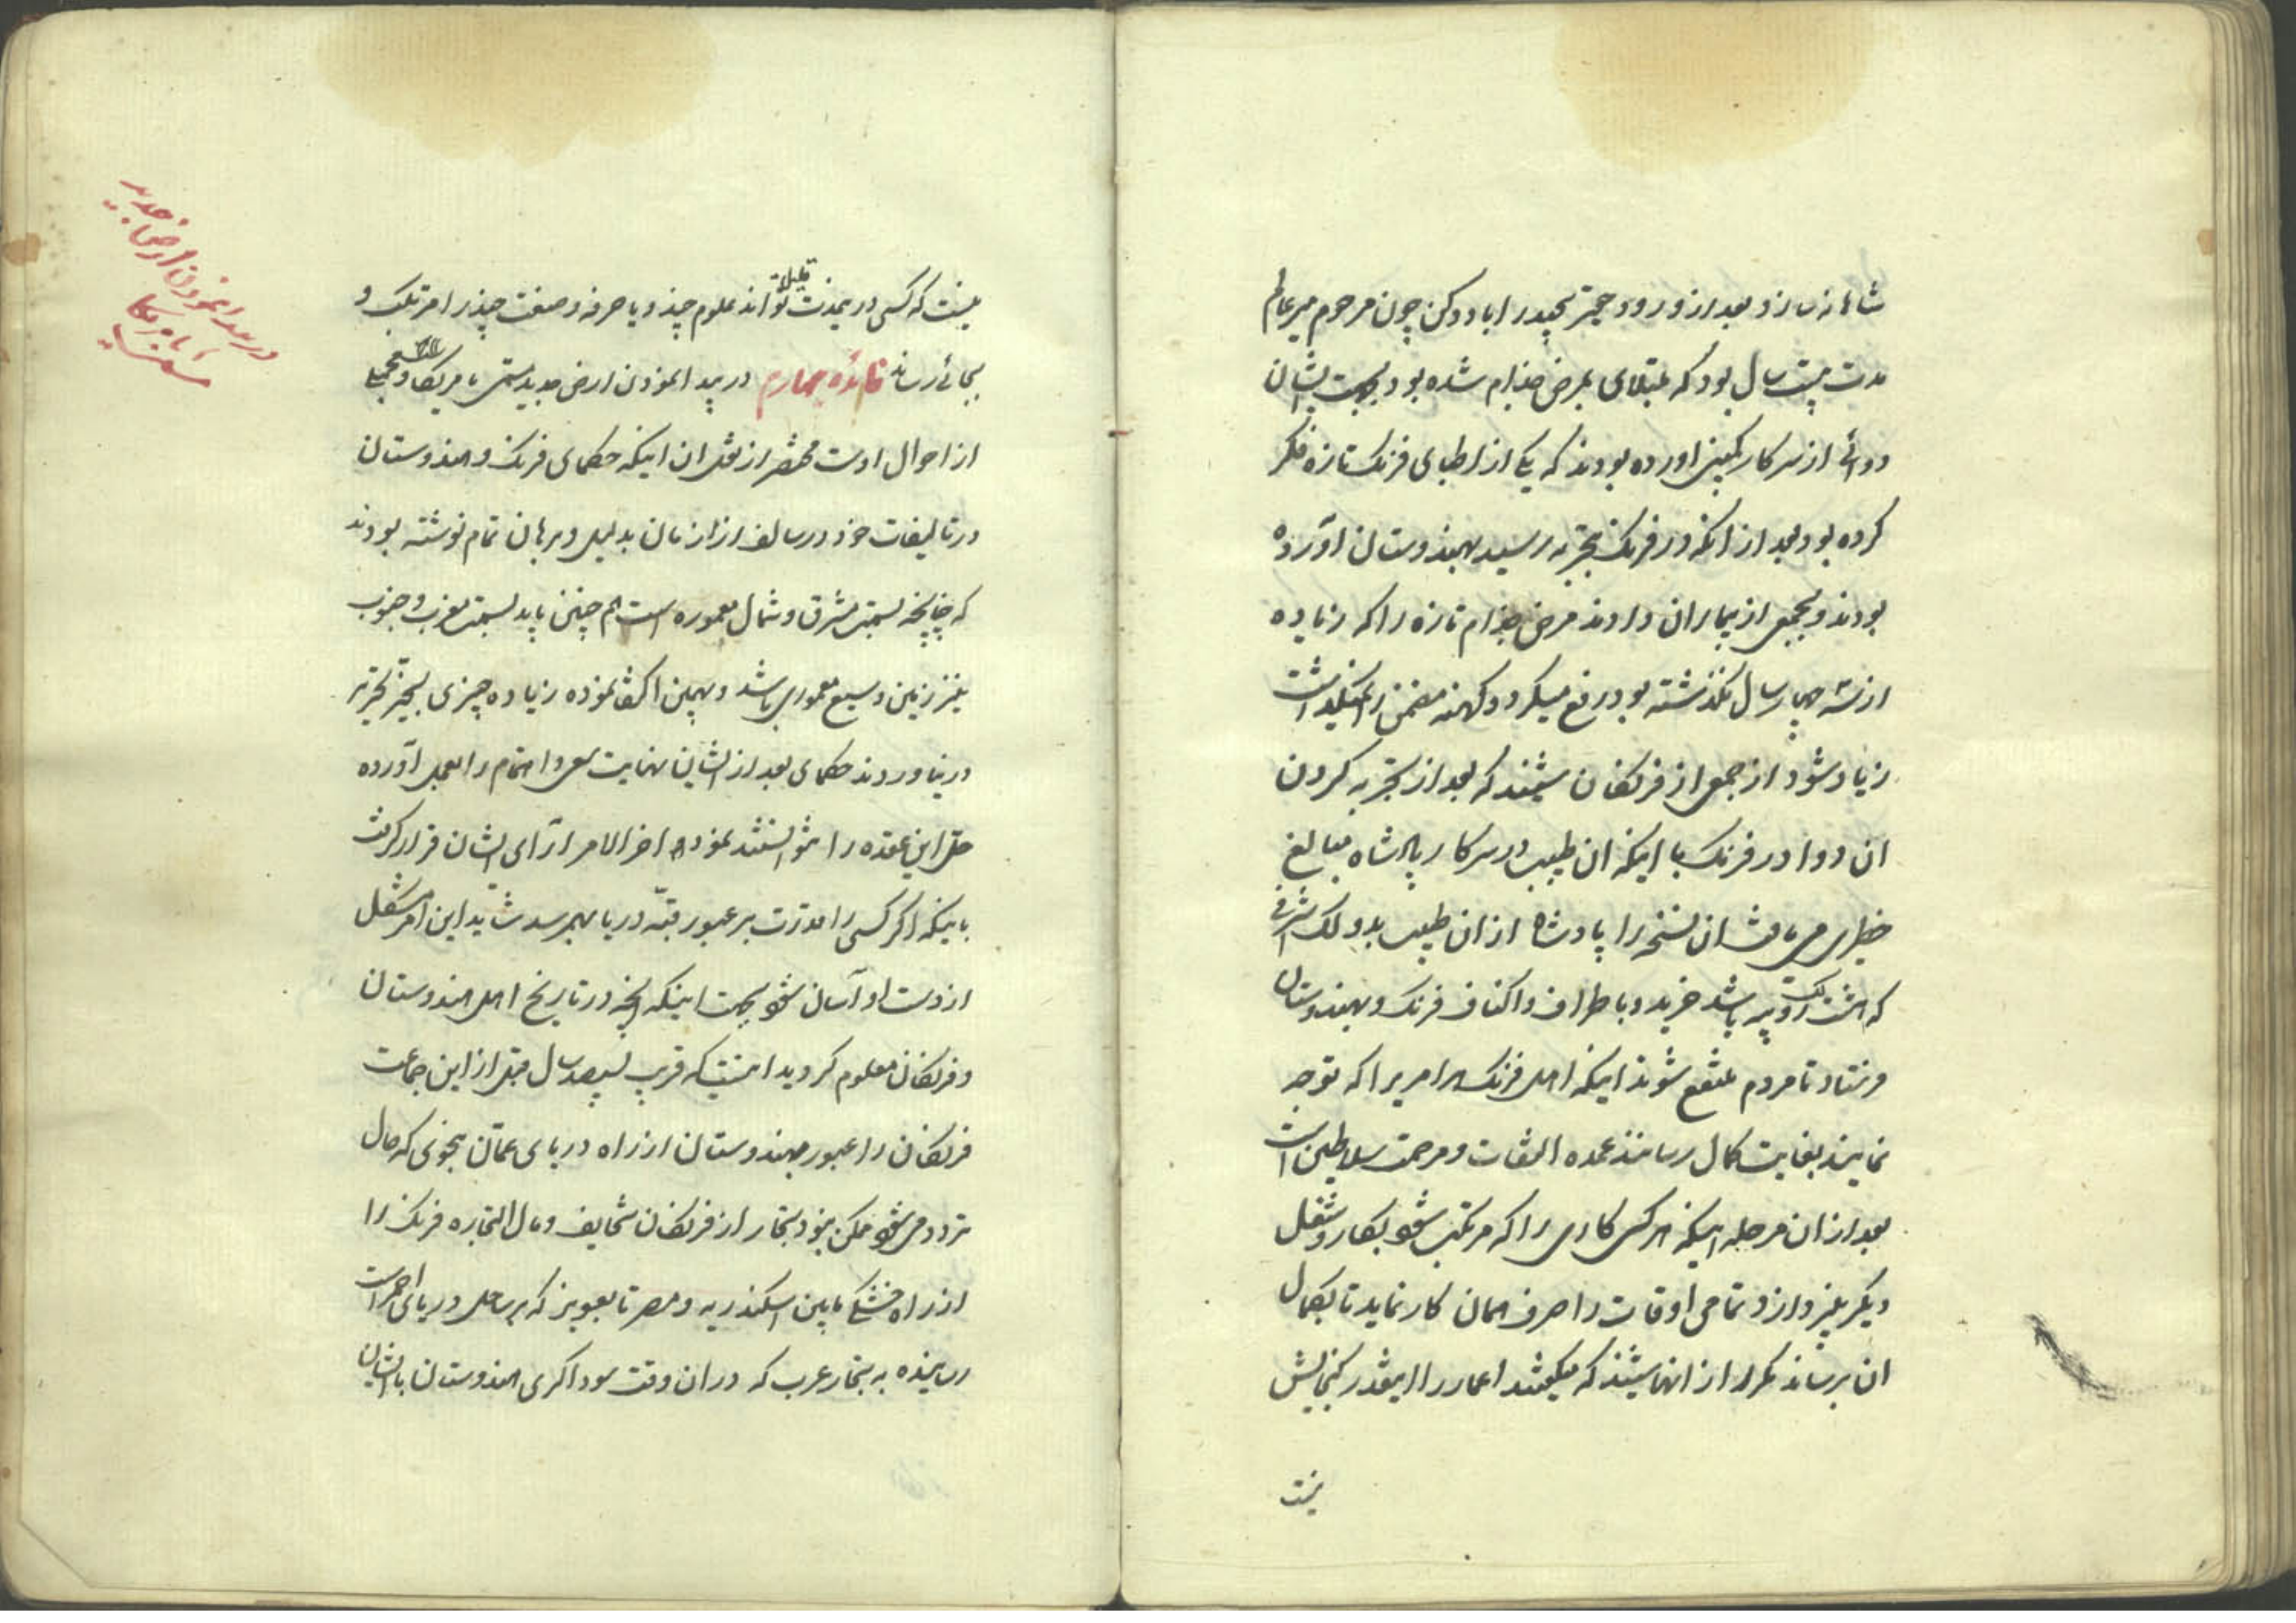 شاهانه سازد و بعد از ورود حقیر بحیدراباد دکن چون مرحوم میرعالم
مدت بیست سال بود که مبتلای بمرض جذام شده بود بجهت ایشان
دوائی از سرکار کمپنی اورده بودند که یکی از اطبای فرنک تازه فکر
کرده بود و بعد از انکه در فرنک بتجربه رسید بهندوستان آورده
بودند و بجمعی از بیماران دادند مرض جذام تازه را که زیاده
از سه چهار سال نکذشته بود رفع میکرد و کهنه مزمن را نمیکذاشت
زیاد شود از جمعی از فرنکان شنیدند که بعد از تجربه کردن
ان دوا در فرنک با اینکه ان طبیب در سرکار پادشاه مبالغ
خطیری می یافت ان نسخه را پادشاه از ان طبیب بدو لک اشرفی
که هشت لک روپیه باشد خرید و باطراف و اکناف فرنک و بهندوستان
فرستاد تا مردم منتفع شوند اینکه اهل فرنک هر امریرا که توجه
نمایند بغایت کمال رسانند عمده التفات و مرحمت سلاطین است
بعد از ان مرحله اینکه هر کس کاری را که مرتکب شود بکار و شغل
دیکر نپردازد و تمامی اوقات را صرف همان کار نماید تا بکمال
ان برساند مکرر از انها شنیدند که میکفتند اعمار را اینقدر کنجایش
نیست
نیست که کسی در مدت قلیل تواند علوم چند و یا حرفه و صنعت چند را مرتکب و
بجائی رساند فائده چهارم در پیدا نمودن ارض جدید مسمی بامریکا و مجملی
از احوال اوست مختصر از مفصل ان اینکه حکمای فرنک و هندوستان
در تالیفات خود در سالف از ازمان بدلیل و برهان تمام نوشته بودند
که چنانچه بسمت مشرق و شمال معموره است هم چنین باید بسمت مغرب و جنوب
نیز زمین وسیع معموری باشد و بهمین اکتفا نموده زیاده چیزی بحیز تحریر
در نیاوردند حکمای بعد از ایشان نهایت سعی و اهتمام را بعمل آورده
حل این عقده را نتوانستند نمود اخر الامر ارآی ایشان قرار کرفت
باینکه اکر کسی را قدرت بر عبور تتمه دریا بهم رسد شاید این امر مشکل
از دست او آسان شود بجهت اینکه انچه در تاریخ اهل هندوستان
و فرنکان معلوم کردید اینست که قریب بسیصد سال قبل از این جماعت
فرنکان را عبور بهندوستان از راه دریای عمان بنحوی که حال
تردد می شود ممکن نبود تجار از فرنکان تحایف و مال التجاره فرنک را
از راه خشکی مابین اسکندریه و مصر تا بعویز که بر ساحل دریای احمر است
رسانیده به تجار عرب که در ان وقت سوداکری هندوستان با ایشان
در پیدا نمودن ارض جدید
مسمی بامریکا